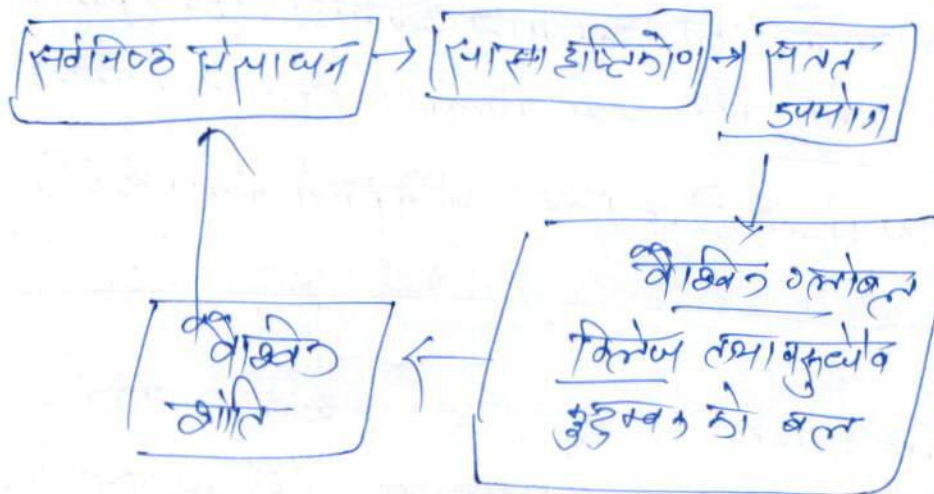 सर्वनिष्ठ संसाधन → साझा दृष्टिकोण → सतत
उपभोग
वैश्विक ग्लोबल
विलेज तथा वसुधैव
कुटुम्बकम को बल
वैश्विक
शांति